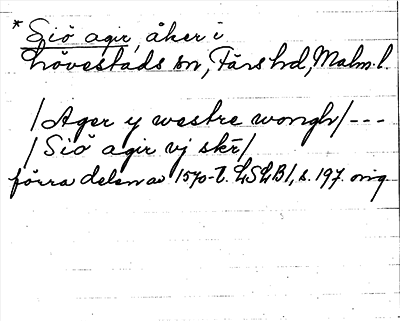 * Siö agir, åker i
Lövestads sn, Färs hd, Malm. l.
/Ager y westre wongh/ ---
/Siö agir vj skr/
förra delen av 1570-t. LSLB1, s. 197. orig